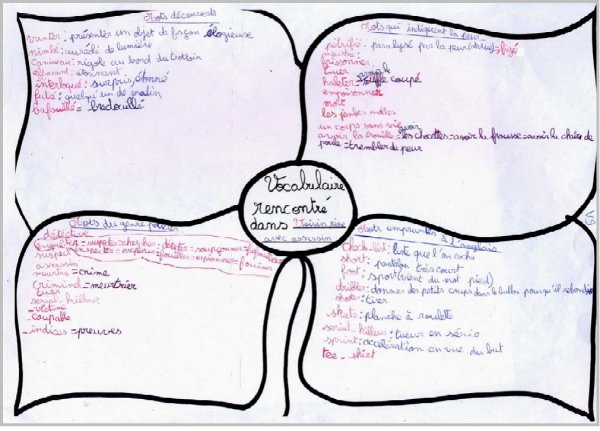 Mots découverts
vanter: présenter un objet de façon élogieuse
nimbé: auréolé de lumière
caniveau: rigole au bord du trottoir
effarant: étonnant
interloqué: surpris, étonné
futé: quelqu'un de malin
bafouillé = bredouillé
Mots qui indiquent la peur
pétrifié: paralysé par la peur (statue) = figé
frissonner
tuer
haleter = souffle coupé
empoisonner
mort
les jambes molles
un corps sans vie
avoir la trouille = avoir les chocottes = avoir la frousse = avoir la chair de
poule = trembler de peur
Vocabulaire
rencontré
dans Voisin rime
avec assassin
Mots du genre policier
détective
enquêter = inspecter = chercher = détecter = soupçonner =
suspect = inspecter = explorer = fouiller = espionner = fouiner
assassin
meurtre = crime
criminel = meurtrier
tuer
serial-killer
- victime
- coupable
- indices = preuves
Mots empruntés à l'anglais
check-list: liste que l'on coche
short: pantalon très court
foot: sport (vient du mot pied)
dribbler: donner des petits coups dans le ballon pour qu'il
shoot: tirer
skate: planche à roulette
serial-killer: tueur en série
sprint: accélération en vue du but
tee-shirt